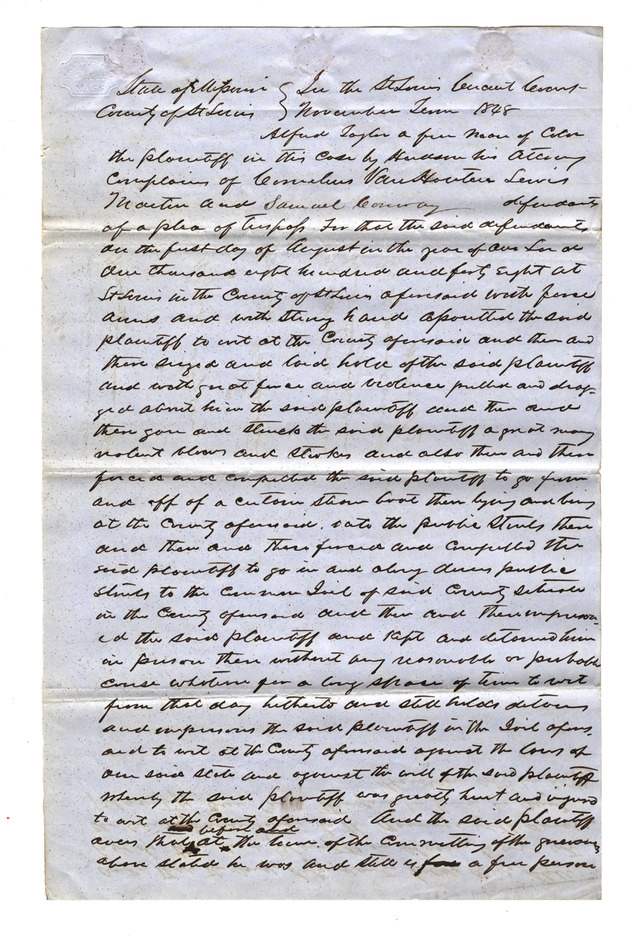 State of Missouri } In the St Louis Circuit Court
County of St Louis } November Term 1848
Alfred Taylor a free man of Color
the plaintiff in this case by Hudson his Attorney
Complains of Cornelius Van Houten Lewis
Martin and Samuel Conway defendants
of a plea of trespass For that the said defendants
on the first day of August in the year of our Lord
one thousand eight hundred and forty eight at
St Louis in the County of St Louis aforesaid with force
arms and with strong hand assaulted the said
plaintiff to wit at the County aforesaid and then and
there seized and laid hold of the said plaintiff
and with great force and violence pulled and drag-
ged about him the said plaintiff and then and
there gave and struck the said plaintiff a great many
violent blows and strokes and also then and there
forced and compelled the said plaintiff to go from
and off of a certain steam boat then lying and being
at the County aforesaid, into the public streets there
and then and there forced and compelled the
said plaintiff to go in and along divers public
streets to the common Jail of said County situate
in the County aforesaid and then and there imprison-
ed the said plaintiff and kept and detained him
in prison there without any reasonable or probable
cause whatever for a long space of time to wit
from that day hitherto and still holds detains
and imprisons the said plaintiff in the Jail afores
aid to wit at the County aforesaid against the laws of
our said state and against the will of the said plaintiff
whereby the said plaintiff was greatly hurt and injured
to wit at the County aforesaid And the said plaintiff
avers that before and at the time of the committing of the grievances
above stated he was and still is a free person